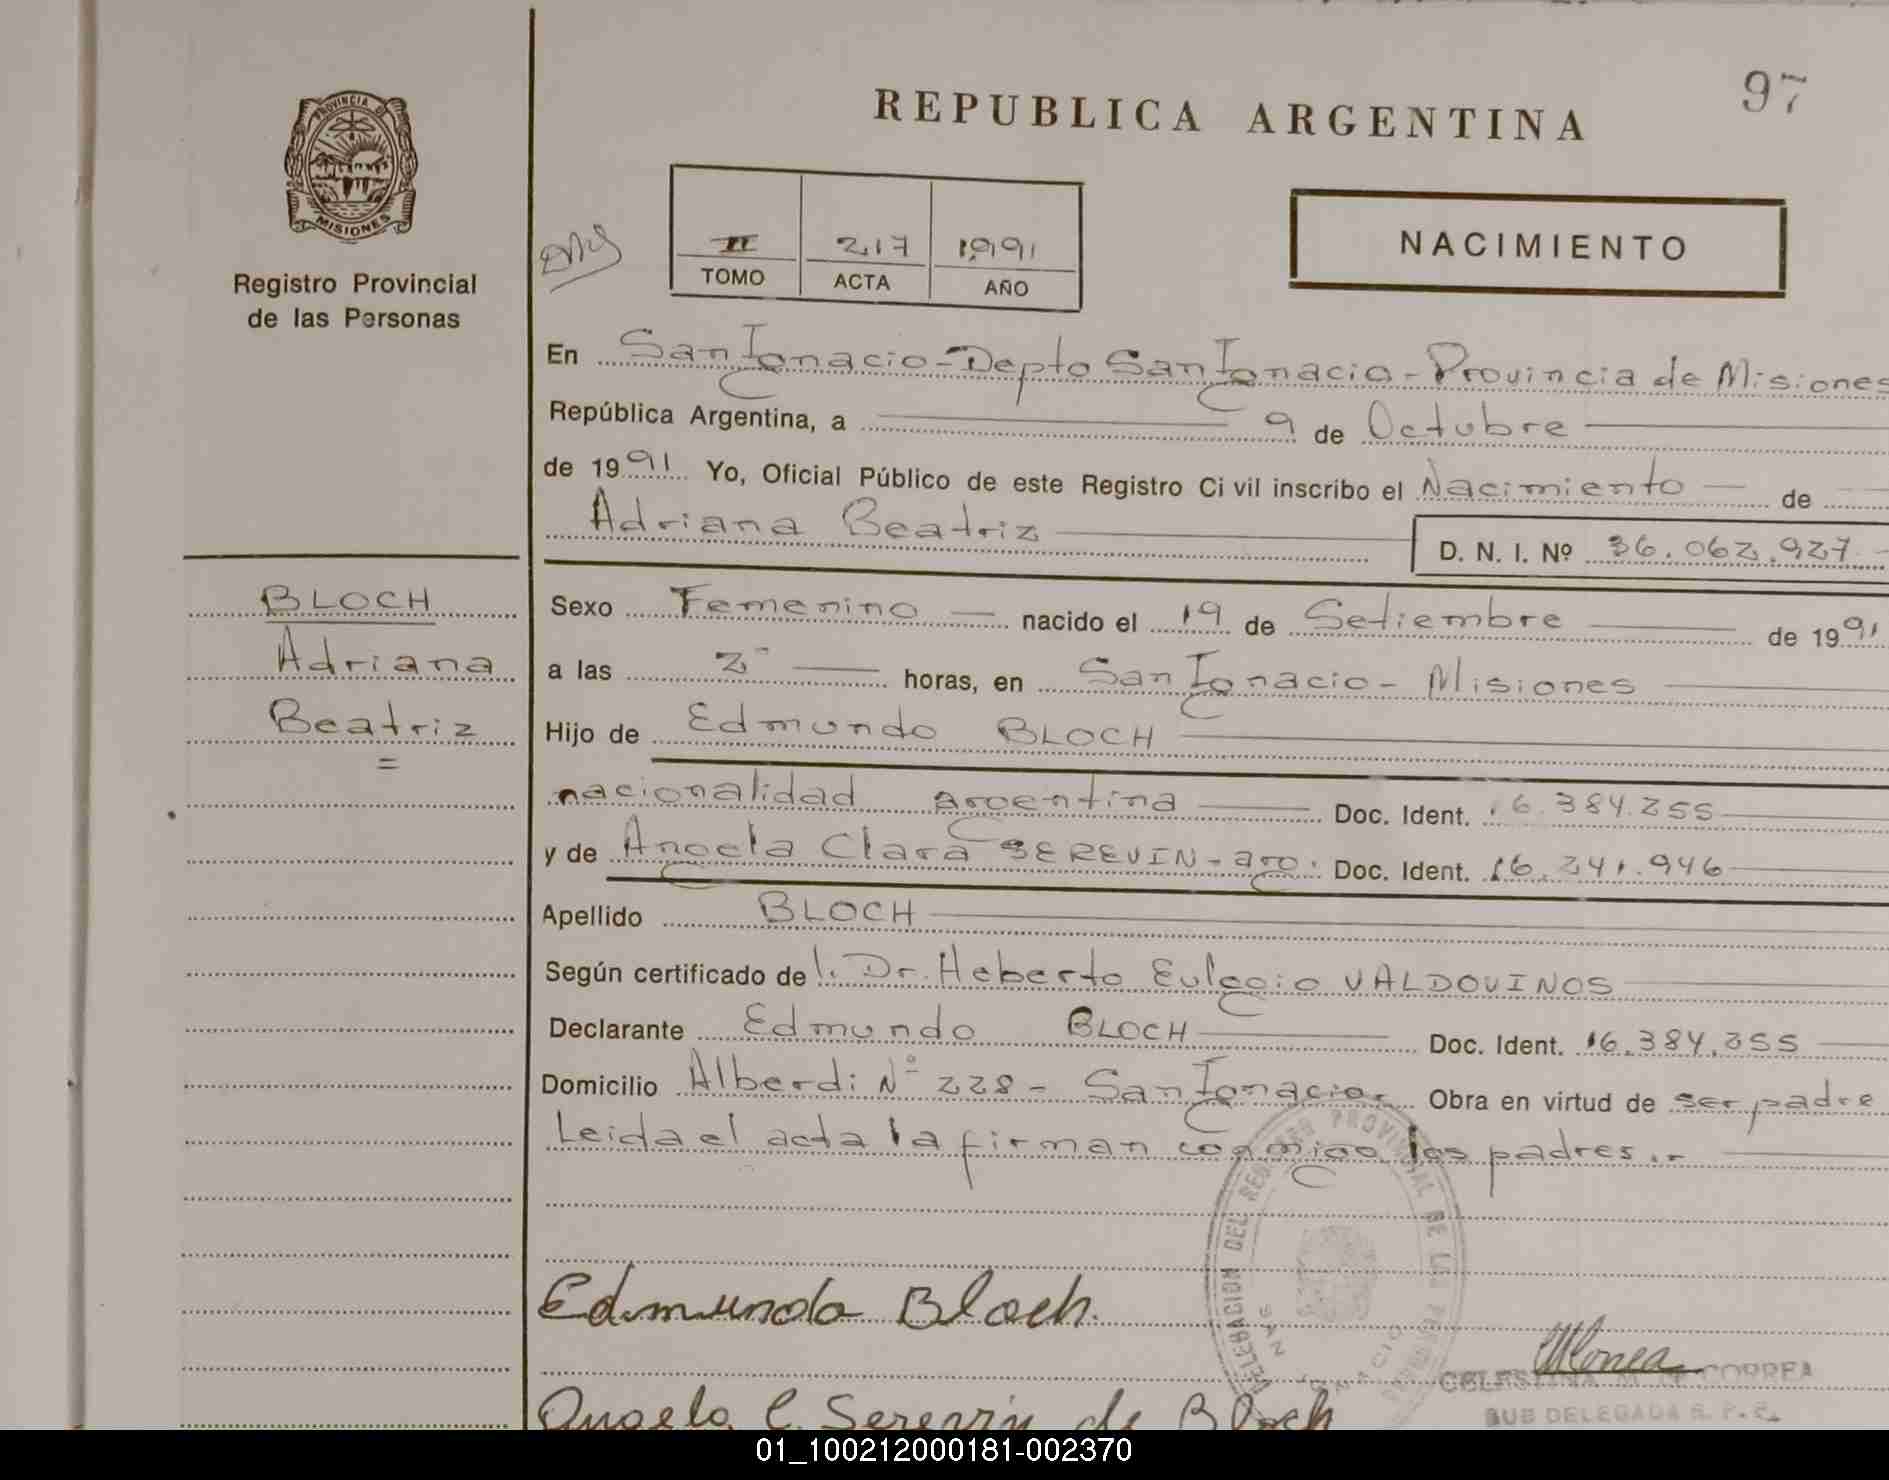 97
REPUBLICA ARGENTINA
PROVINCIA DE
MISIONES
Registro Provincial
de las Personas
II 217 1991
TOMO ACTA AÑO
NACIMIENTO
En San Ignacio - Depto San Ignacio - Provincia de Misiones
República Argentina, a 9 de Octubre
de 1991 Yo, Oficial Público de este Registro Ci vil inscribo el Nacimiento de
Adriana Beatriz D. N. I. Nº 36.062.927
BLOCH
Adriana
Beatriz
=
Sexo Femenino nacido el 19 de Setiembre de 1991
a las 2 horas, en San Ignacio - Misiones
Hijo de Edmundo BLOCH
nacionalidad argentina Doc. Ident. 16.384.255
y de Angela Clara SEREVIN - arg. Doc. Ident. 16.241.946
Apellido BLOCH
Según certificado del. Dr. Heberto Eulogio VALDOVINOS
Declarante Edmundo BLOCH Doc. Ident. 16.384.255
Domicilio Alberdi Nº 228 - San Ignacio. Obra en virtud de ser padre
Leida el acta la firman conmigo los padres.-
DELEGACION DEL REGISTRO PROVINCIAL DE LAS PERSONAS
SAN IGNACIO
Edmundo Bloch.
CELESTINA M. DE CORREA
SUB DELEGADA R. P. P.
Angela C. Serevin de Bloch
01_100212000181-002370